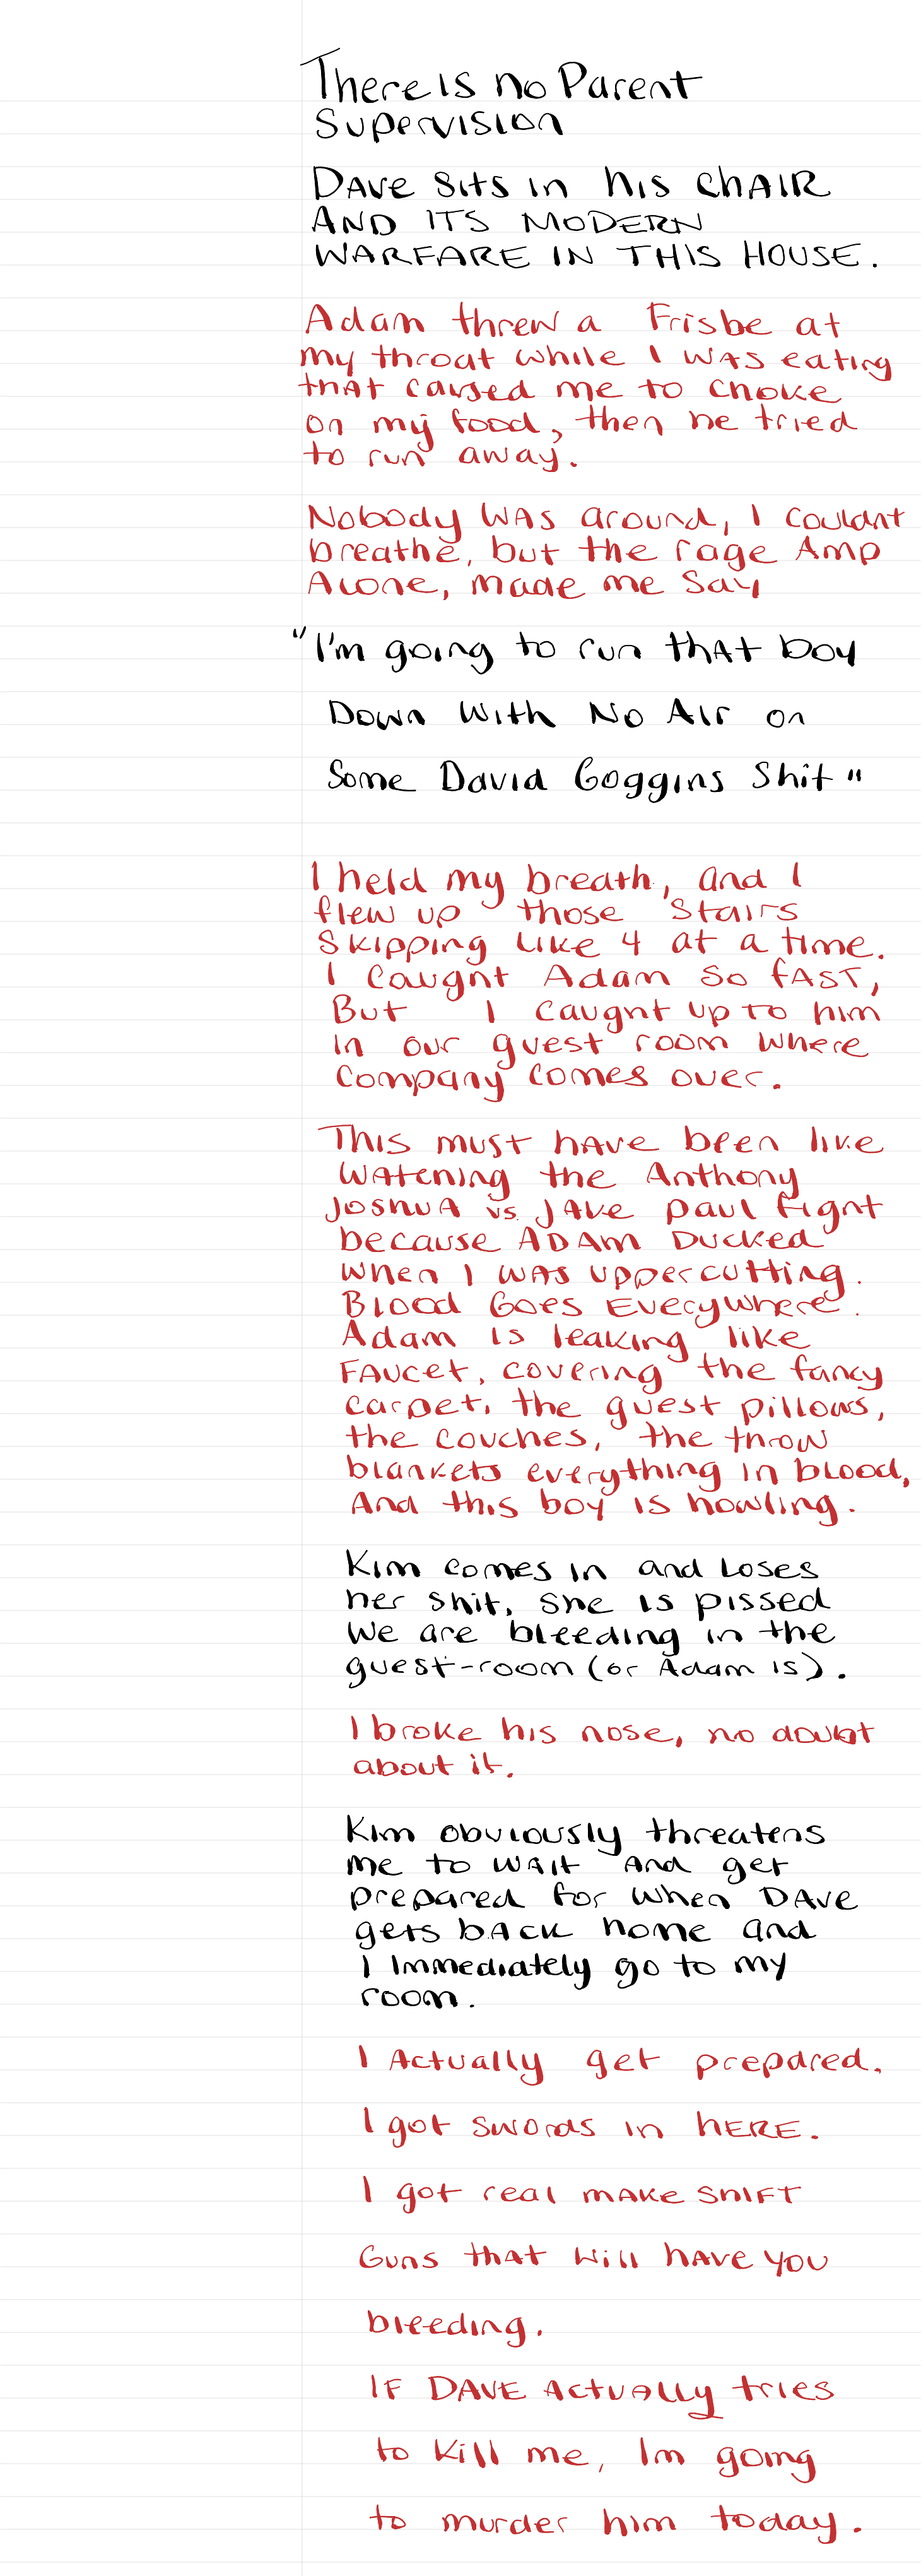 There is no Parent
Supervision
DAve sits in his chAIR
AND ITS MODERN
WARFARE IN THIS HOUSE.
Adam threw a Frisbe at
my throat while I WAS eating
thAt caused me to choke
on my food, then he tried
to run away.
Nobody WAS around, I couldnt
breathe, but the rage Amp
Alone, made me say
"I'm going to run thAt boy
Down With No Air on
Some David Goggins Shit"
I held my breath, and I
flew up those stairs
Skipping like 4 at a time.
I caught Adam so fAST,
But I caught up to him
in our guest room where
Company comes over.
This must hAve been like
WAtching the Anthony
JoshuA vs. JAke paul fight
because ADAm Ducked
when I WAS uppercutting.
Blood Goes Everywhere.
Adam is leaking like
FAucet, covering the fancy
carpet, the guest pillows,
the couches, the throw
blankets everything in blood,
And this boy is howling.
Kim comes in and loses
her shit, she is pissed
We are bleeding in the
guest-room (or Adam is).
I broke his nose, no doubt
about it.
Kim obviously threatens
me to wAit And get
prepared for when DAve
gets bAck home and
I Immediately go to my
room.
I Actually get prepared.
I got swords in hERE.
I got real mAke ShIFT
Guns that will hAve you
bleeding.
IF DAVE ActuAlly tries
to kill me, Im going
to murder him today.